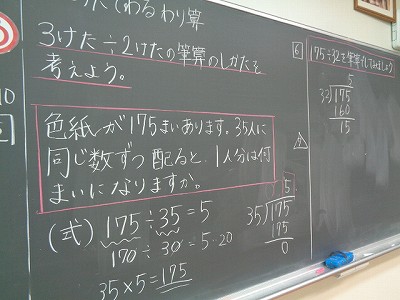 てわる わり算
3けた÷2けたの筆算のしかたを
考えよう。
色紙が175まいあります。35人に
同じ数ずつ配ると、1人分は何
まいになりますか。
(式) 175÷35=5
170÷30=5…20
35×5=175
5
35)175
175
0
6
175÷32を筆算でしてみましょう
5
32)175
160
15
7
10